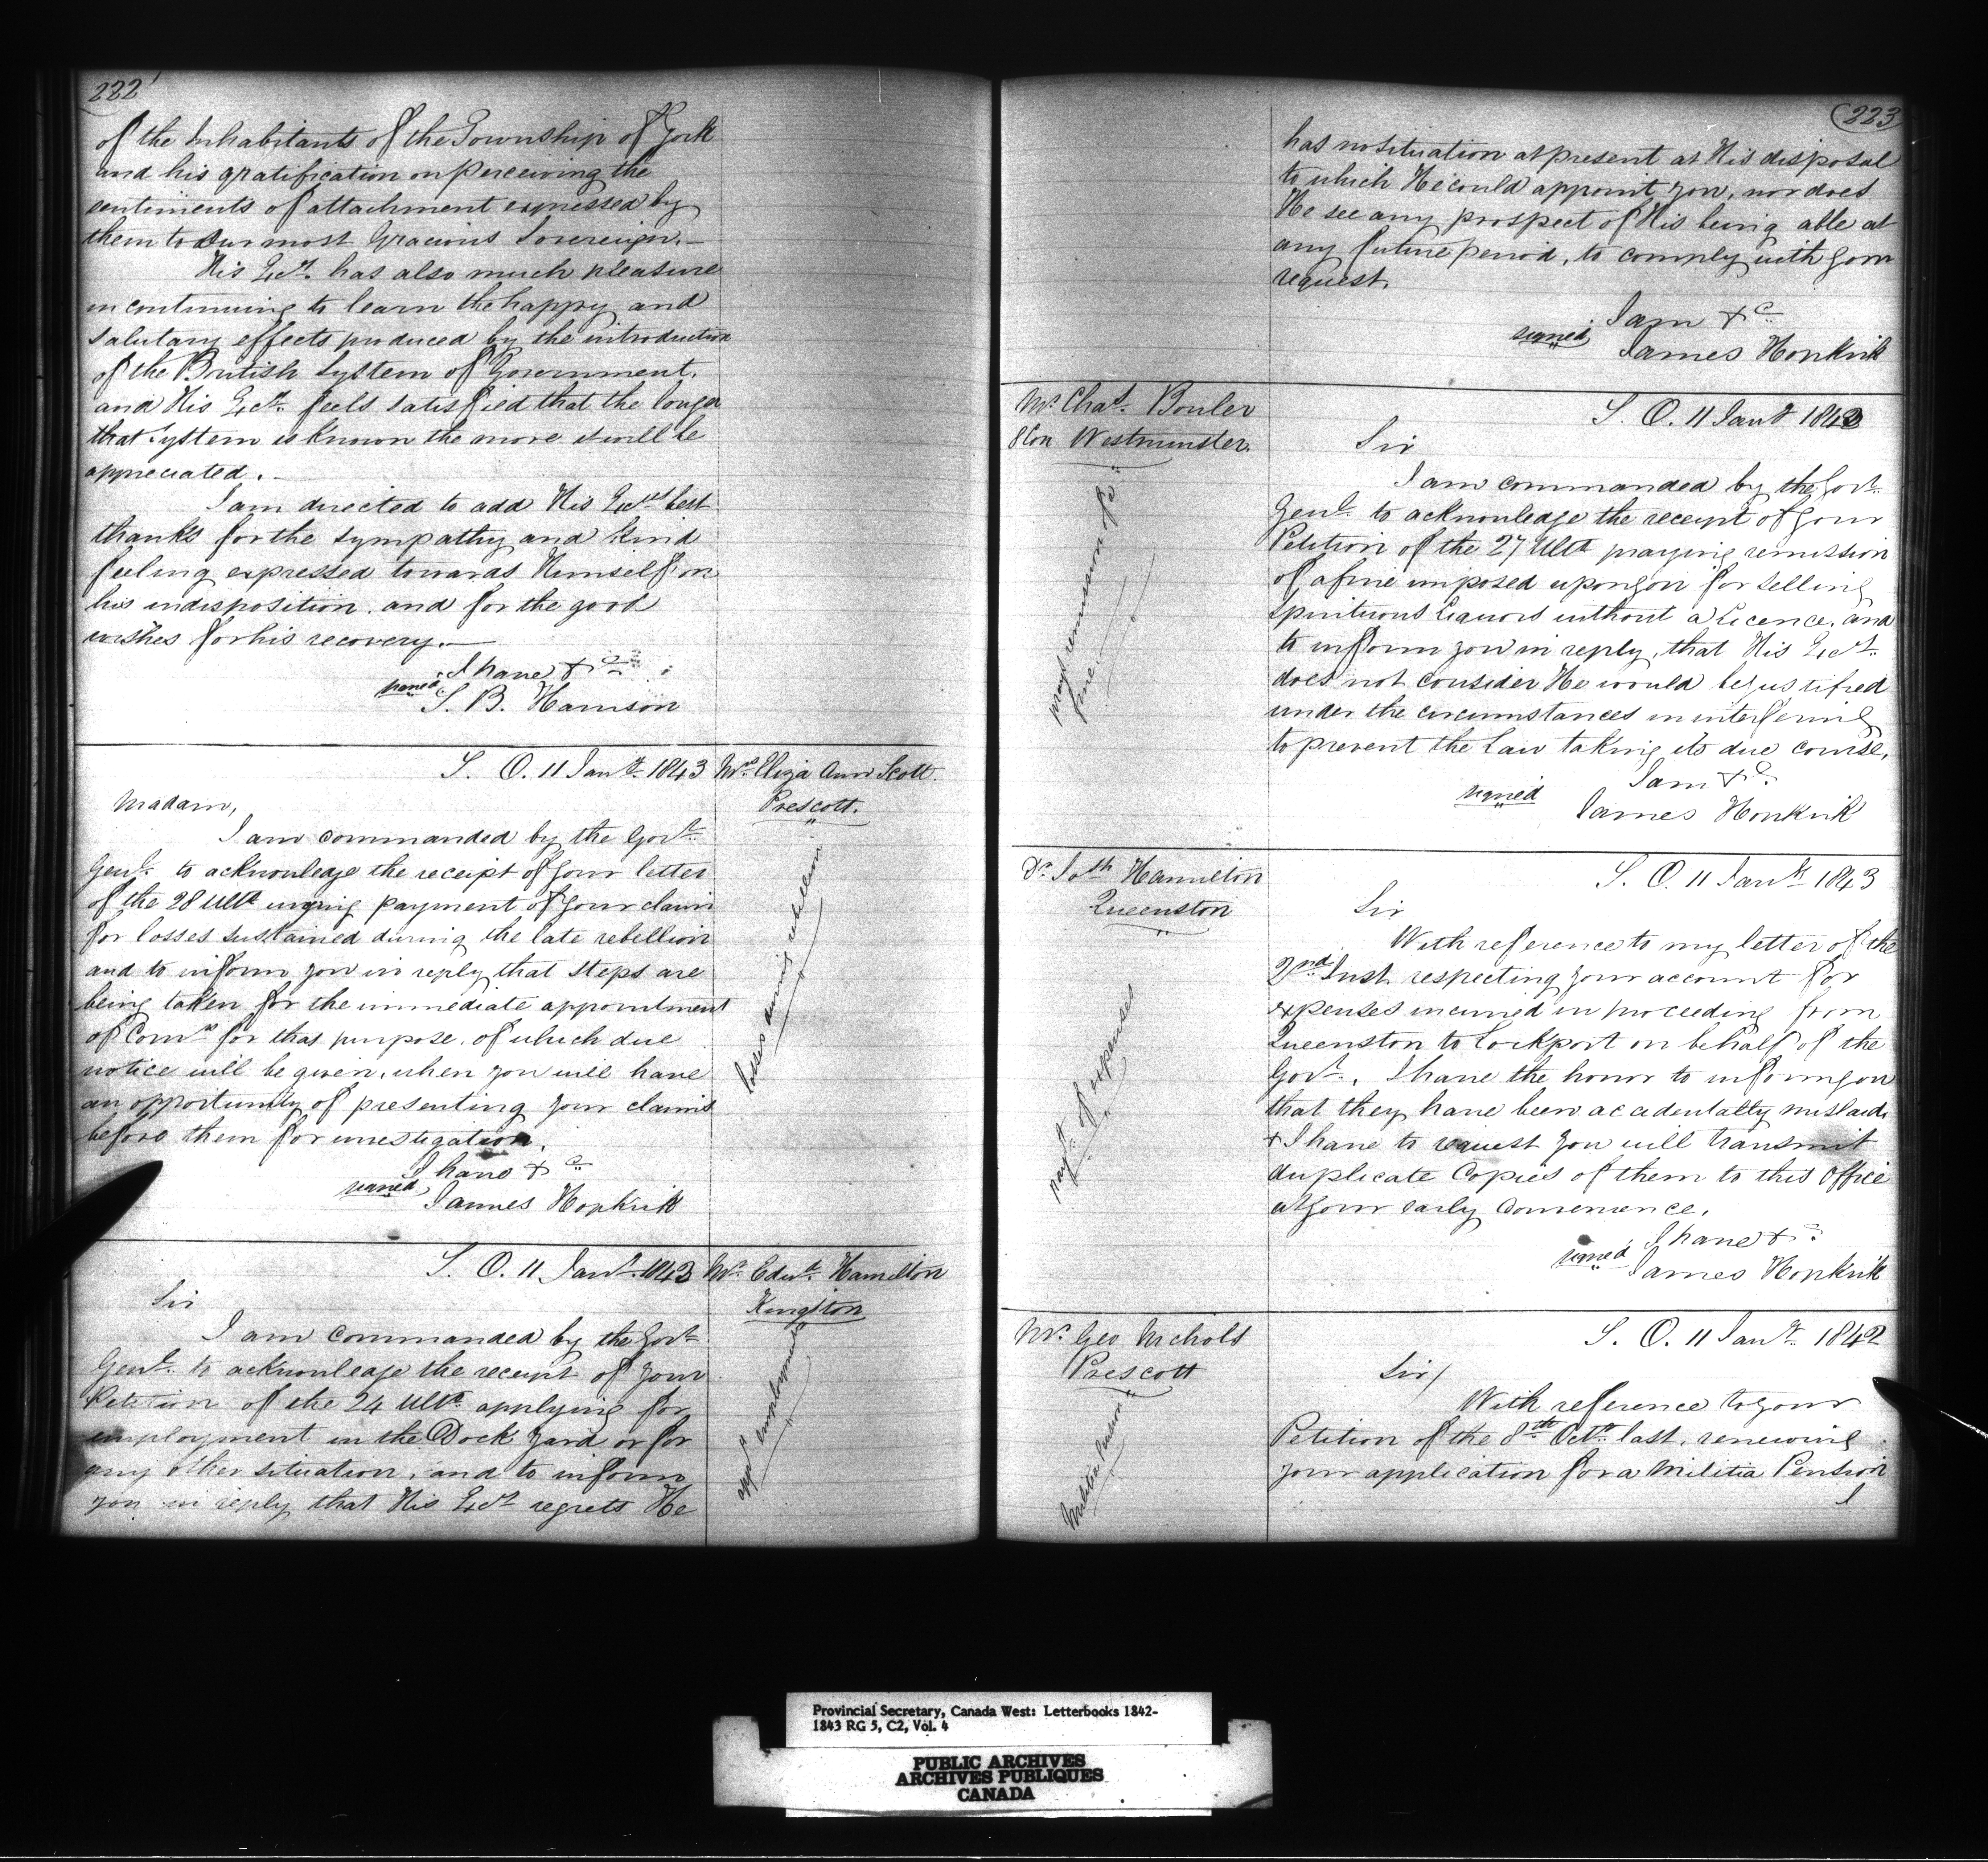 222
of the Inhabitants of the Township of York
and his gratification on perceiving the
sentiments of attachment expressed by
them to Our most Gracious Sovereign.—
His Excy. has also much pleasure
in continuing to learn the happy and
salutary effects produced by the introduction
of the British System of Government.
and His Excy. feels satisfied that the longer
that System is known the more it will be
appreciated.—
I am directed to add His Excys best
thanks for the sympathy and kind
feeling expressed towards Himself on
his indisposition. and for the good
wishes for his recovery.—
I have &c
signed S. B. Harrison
S. O. 11 Jany. 1843
Mrs Eliza Ann Scott.
Prescott.
Losses during rebellion
Madam,
I am commanded by the Govr.
Genl. to acknowledge the receipt of your letter
of the 28 Ulto urging payment of your claim
for losses sustained during the late rebellion
and to inform you in reply that steps are
being taken for the immediate appointment
of Comrs for that purpose. of which due
notice will be given, when you will have
an opportunity of presenting your claims
before them for investigation.
I have &c
signed James Hopkirk
S. O. 11 Jany. 1843
Mr. Edwd. Hamilton
Kingston
appg employment
Sir
I am commanded by the Govr.
Genl. to acknowledge the receipt of your
Petition of the 24 Ulto. applying for
employment in the Dock Yard or for
any other situation, and to inform
you in reply that His Excy regrets He
223
has no situation at present at His disposal
to which He could appoint you, nor does
He see any prospect of His being able at
any future period, to comply with your
request.
I am &c
signed James Hopkirk
Mr. Chas. Bouler
8 Con Westminster.
prays remission of a
fine.
S. O. 11 Jany 1843
Sir
I am commanded by the Govr.
Genl. to acknowledge the receipt of your
Petition of the 27 Ulto praying remission
of a fine imposed upon you for selling
Spirituous Liquors without a Licence. and
to inform you in reply, that His Excy.
does not consider He would be justified
under the circumstances in interfering
to prevent the Law taking its due course.
I am &c.
signed James Hopkirk
Dr. Jos Hamilton
Queenston
payt. of expenses
S. O. 11 Jany 1843
Sir
With reference to my letter of the
2nd. Inst. respecting your account for
expenses incurred in proceeding from
Queenston to Lockport on behalf of the
Govt., I have the honor to inform you
that they have been accidentally mislaid,
& I have to request you will transmit
duplicate Copies of them to this Office
at your early convenience.
I have &c
signed James Hopkirk
Mr. Geo Nichols
Prescott
Militia Pension
S. O. 11 Jany. 1842
Sir/
With reference to your
Petition of the 8th Octr. last. renewing
your application for a Militia Pension
I
Provincial Secretary, Canada West: Letterbooks 1842-
1843 RG 5, C2, Vol. 4
PUBLIC ARCHIVES
ARCHIVES PUBLIQUES
CANADA